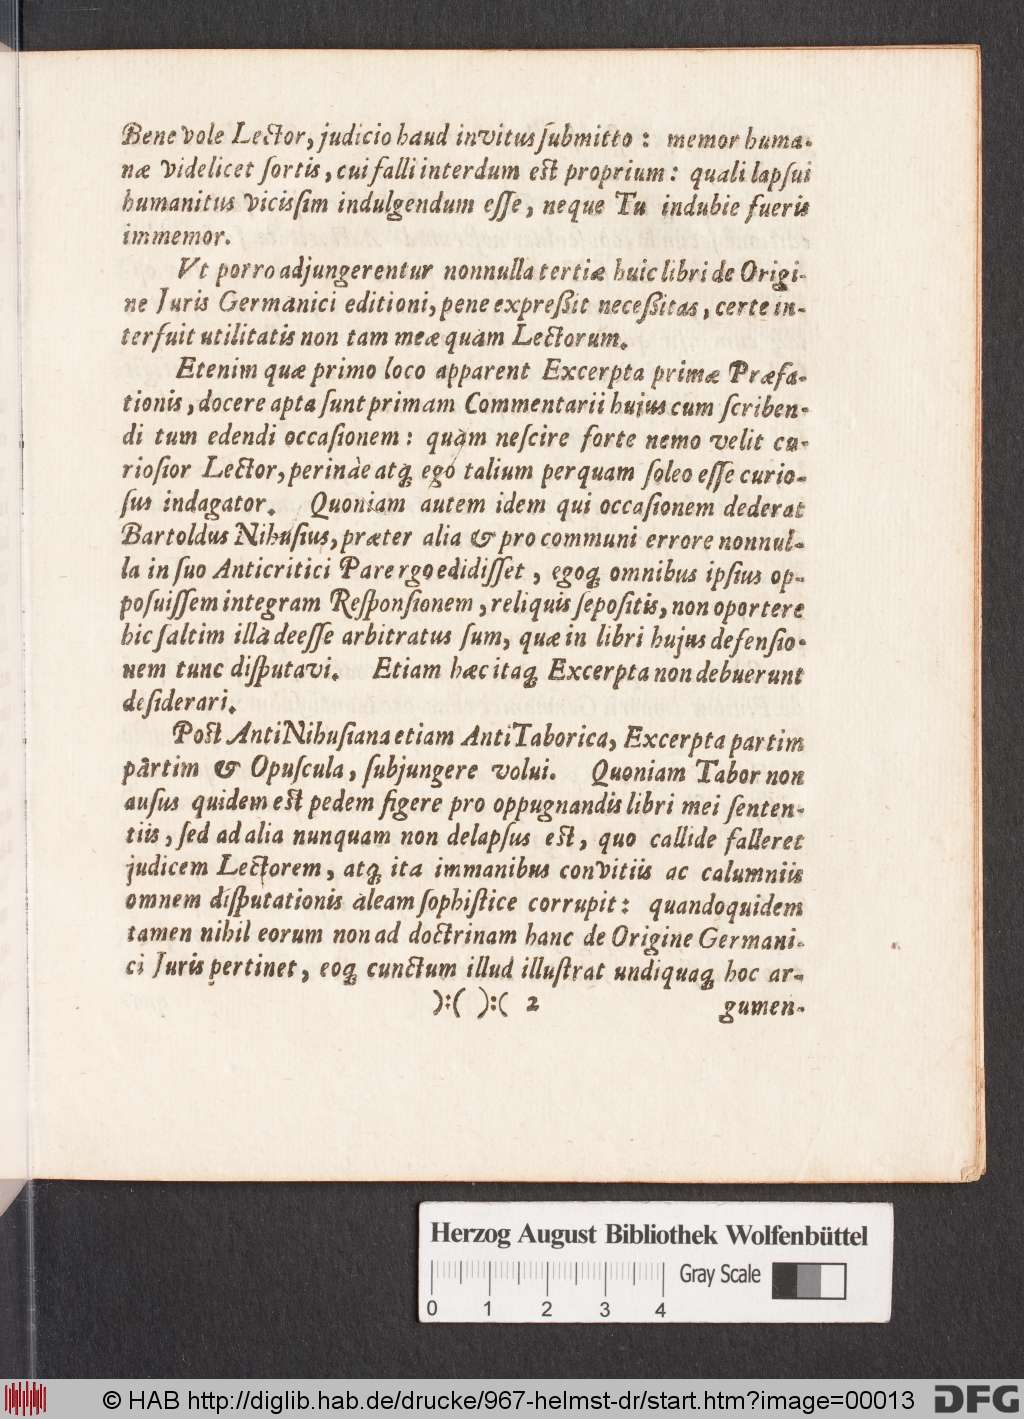 Benevole Lector, judicio haud invitus ſubmitto: memor huma-
næ videlicet ſortis, cui falli interdum est proprium: quali lapſui
humanitus vicisſim indulgendum eſſe, neque Tu indubie fueris
immemor.
Vt porro adjungerentur nonnulla tertiæ huic libri de Origi-
ne Juris Germanici editioni, pene expreßit neceßitas, certe in-
terfuit utilitatis non tam meæ quàm Lectorum.
Etenim quæ primo loco apparent Excerpta primæ Præfa-
tionis, docere apta ſunt primam Commentarii hujus cum ſcriben-
di tum edendi occaſionem: quàm neſcire forte nemo velit cu-
rioſior Lector, perinàe atq́; ego talium perquam ſoleo eſſe curio-
ſus indagator. Quoniam autem idem qui occaſionem dederat
Bartoldus Nihuſius, præter alia & pro communi errore nonnul-
la in ſuo Anticritici Parergo edidiſſet, egoq́; omnibus ipſius op-
poſuiſſem integram Reſponſionem, reliquis ſepoſitis, non oportere
hic ſaltim illà deeſſe arbitratus ſum, quæ in libri hujus defenſio-
nem tunc diſputavi. Etiam hæc itaq́; Excerpta non debuerunt
deſiderari.
Post AntiNihuſiana etiam AntiTaborica, Excerpta partim
pàrtim & Opuſcula, ſubjungere volui. Quoniam Tabor non
auſus quidem est pedem figere pro oppugnandis libri mei ſenten-
tiis, ſed ad alia nunquam non delapſus est, quo callide falleret
judicem Lectorem, atq́; ita immanibus convitiis ac calumniis
omnem diſputationis àleam ſophiſtice corrupit: quandoquidem
tamen nihil eorum non ad doctrinam hanc de Origine Germani-
ci Juris pertinet, eoq́; cunctum illud illuſtrat undiquaq́; hoc ar-
):( ):( 2 gumen-
Herzog August Bibliothek Wolfenbüttel
Gray Scale
0 1 2 3 4
© HAB http://diglib.hab.de/drucke/967-helmst-dr/start.htm?image=00013
DFG